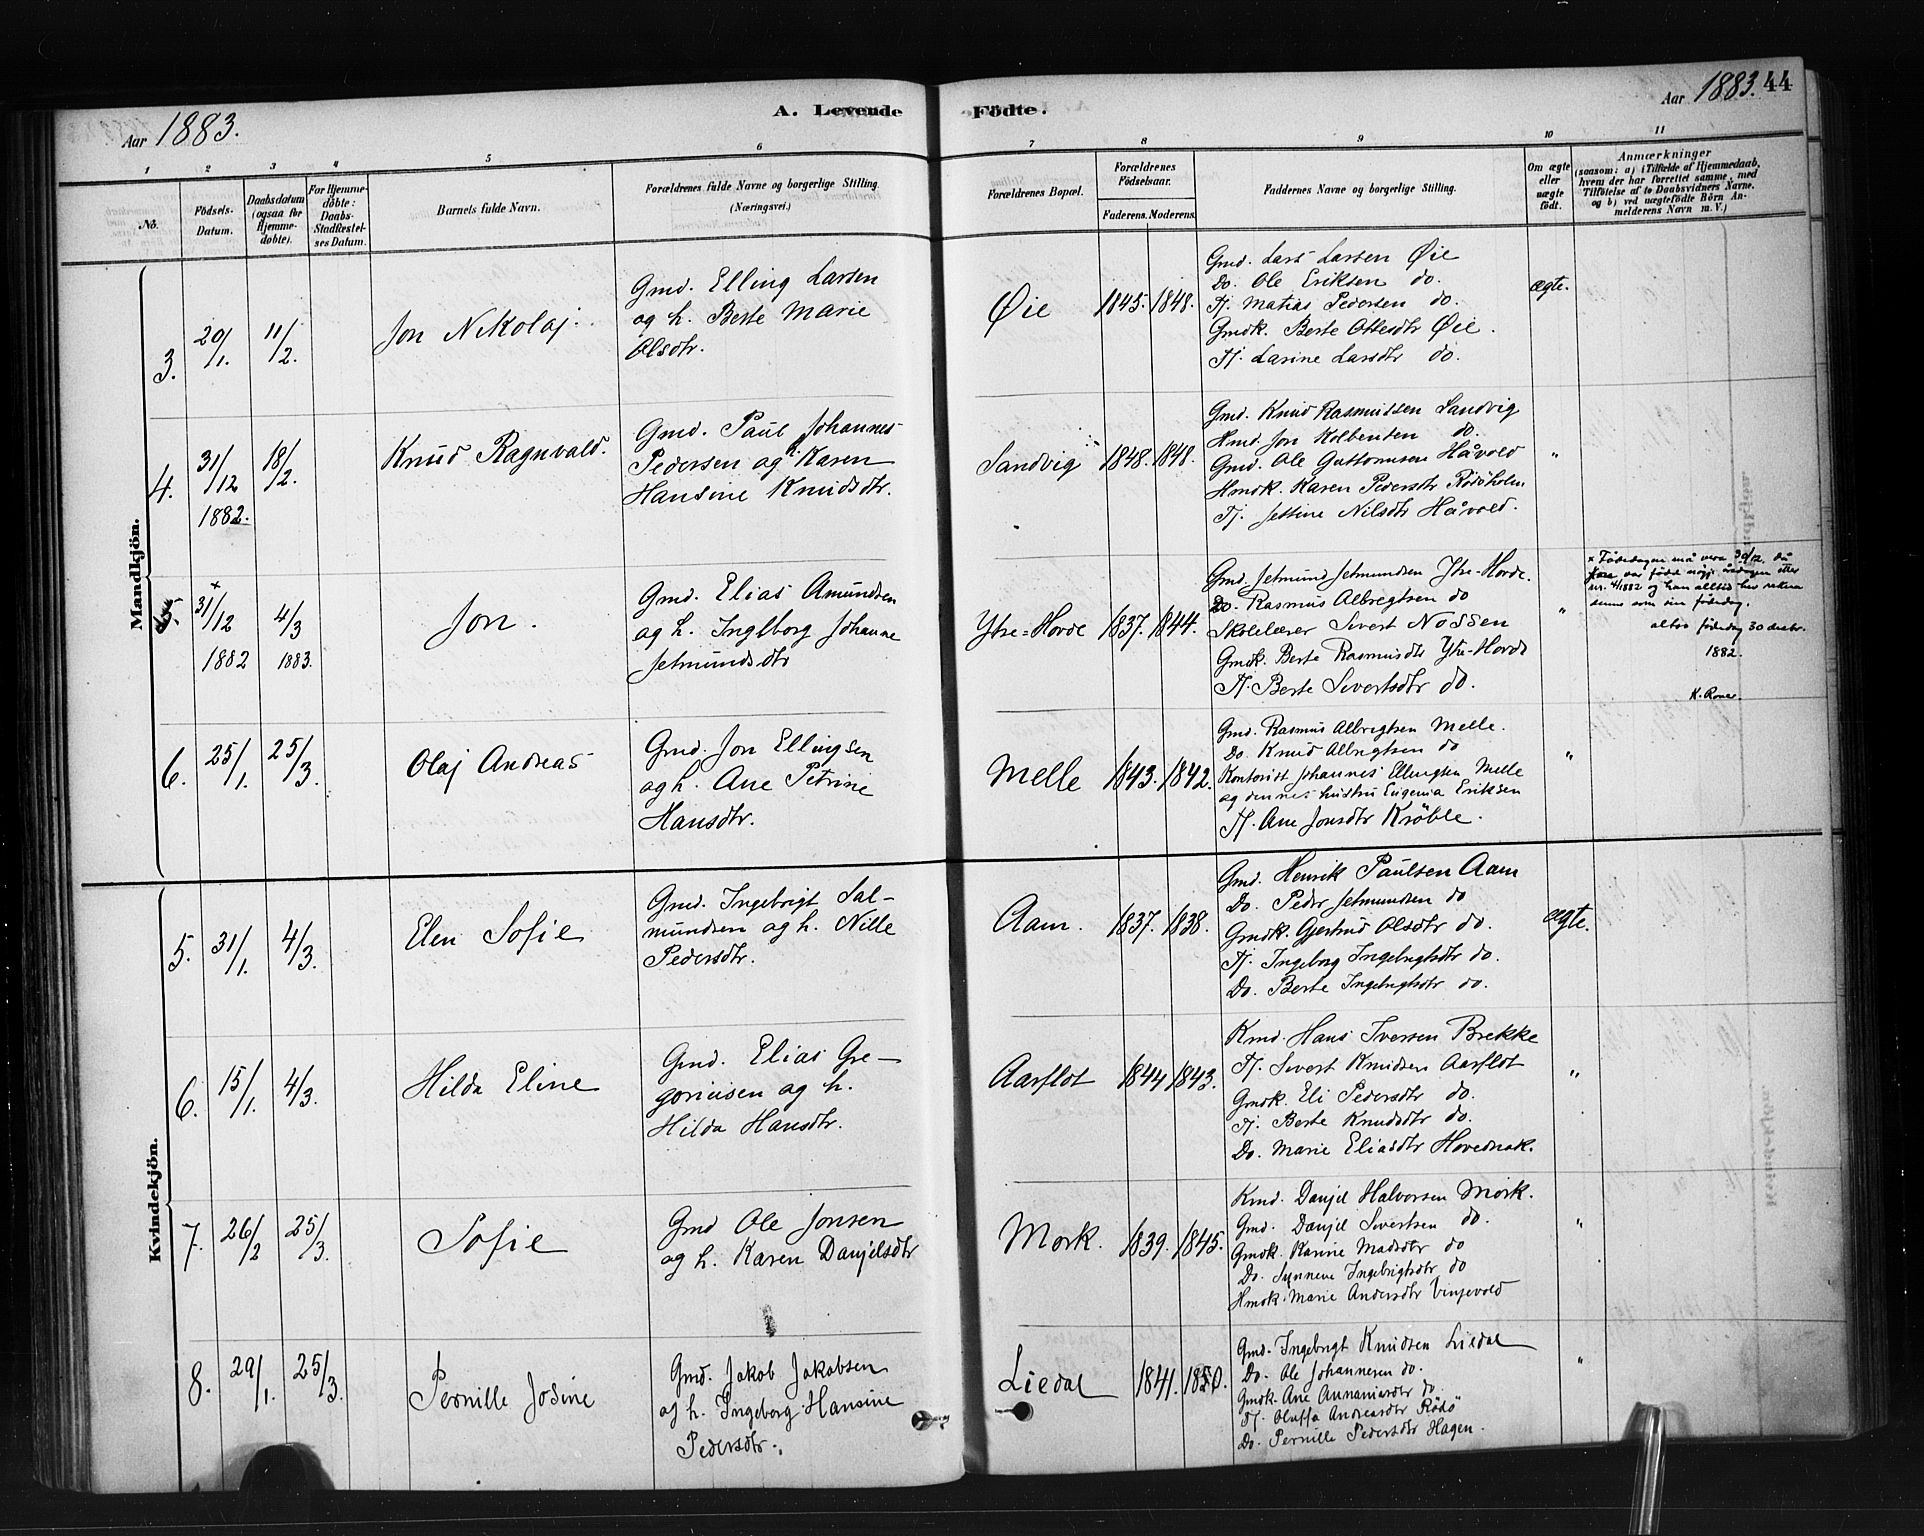 Aar 1883.
A. Levende
Födte.
Aar 1883. 44
1 2 3 4 5 6 7 8 9 10 11
No.
Födsels-
Datum.
Daabsdatum
(ogsaa for
Hjemme-
døbte).
For Hjemme-
døbte:
Daabs-
Stadfæstel-
ses Datum.
Barnets fulde Navn.
Forældrenes fulde Navne og borgerlige Stilling.
(Næringsvei.)
Forældrenes Bopæl.
Forældrenes
Födselsaar.
Faderens. Moderens.
Faddernes Navne og borgerlige Stilling.
Om ægte
eller
uægte
født.
Anmærkninger
(saasom: a) i Tilfælde af Hjemmedaab,
hvem der har forrettet samme, med
Tilføielse af to Daabsvidners Navne.
og b) ved uægtefödte Börn An-
melderens Navn m. V.)
Mandkjön.
3.
20/1.
11/2.
Jon Nikolaj.
Gmd. Elling Larsen
og h. Berte Marie
Olsdtr.
Øie
1845. 1848.
Gmd. Lars Larsen Øie
Do. Ole Eriksen do.
Tj. Matias Pedersen do.
Gmdk. Berte Ottesdtr Øie.
Tj. Larine Larsdtr do.
ægte.
4.
31/12
1882.
18/2.
Knud Ragnvald.
Gmd. Paul Johannes
Pedersen og Karen
Hansine Knudsdtr.
Sandvig
1848. 1848.
Gmd. Knud Rasmussen Sandvig
Hmd. Jon Kolbensen do.
Gmd. Ole Guttormsen Håvold
Hmdk. Karen Pedersdtr Rödöholm
Tj. Jettine Nilsdtr Håvold.
"
x
31/12
1882
4/3
1883.
Jon.
Gmd. Elias Amundsen
og h. Inglborg Johanne
Jetmundsdtr
Ytre-Hovde
1837. 1844.
Gmd. Jetmund Jetmundsen Ytre-Hovde.
Do. Rasmus Albregtsen do
Skolelærer Sivert Nossen
Gmdk. Berte Rasmusdtr Ytre-Hovde
Tj. Berte Sivertsdtr do.
"
x Fødedagen må vera 30/12, då
var född
nr. 4/1882 og han alltid hev rekna
denne som sin födedag.
altso födedag 30 desbr.
1882.
6.
25/1.
25/3.
Olaj Andreas
Gmd. Jon Ellingsen
og h. Ane Petrine
Hansdtr.
Melle
1843. 1842.
Gmd. Rasmus Albregtsen Melle.
Do. Knud Albregtsen do
Kontorist Johannes Ellingsen Melle
og dennes hustru Eugenia Eriksen
Tj. Ane Jonsdtr Kröble.
"
Kvindekjön.
5.
31/1.
4/3.
Elen Sofie
Gmd. Ingebrigt Sal-
mundsen og h. Nille
Pedersdtr.
Aam.
1837. 1838.
Gmd. Henrik Paulsen Aam
Do. Peder Jetmundsen do
Gmdk. Gjertrud Olsdtr do.
Tj. Ingeborg Ingebrigtsdtr do.
Do. Berte Ingebrigtsdtr do.
ægte.
6.
15/1.
4/3.
Hilda Eline
Gmd. Elias Gre-
goriusen og h.
Hilda Hansdtr.
Aarflot
1844 1843.
Kmd. Hans Iversen Brekke
Tj. Sivert Knudsen Aarflot
Gmdk. Eli Pedersdtr do.
Tj. Berte Knudsdtr do.
Do. Marie Eliasdtr Hovednak.
"
7.
26/2
25/3.
Sofie
Gmd Ole Jonsen
og h. Karen Danjelsdtr
Mork.
1839. 1845.
Kmd. Danjel Halvorsen Mork.
Gmd. Danjel Sivertsen do.
Gmdk. Karine Madsdtr do
Do. Synneve Ingebrigtsdtr do
Hmdk. Marie Andersdtr Vinjevold
"
8.
29/1.
25/3.
Pernille Josine
Gmd. Jakob Jakobsen
og h. Ingeborg Hansine
Pedersdtr.
Liedal
1841. 1850.
Gmd. Ingebrigt Knudsen Liedal
Do. Ole Johannesen do.
Gmdk. Ane Annaniasdtr do.
Tj. Oluffa Andreasdtr Rödö
Do. Pernille Pedersdtr Hagen.
"